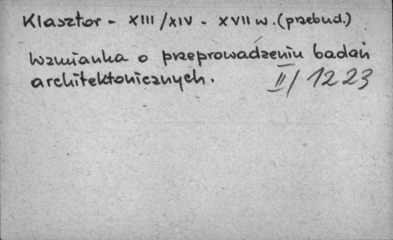 Klasztor - XIII/XIV - XVII w. (przebud.)
Wzmianka o przeprowadzeniu badań
architektonicznych. II/1223